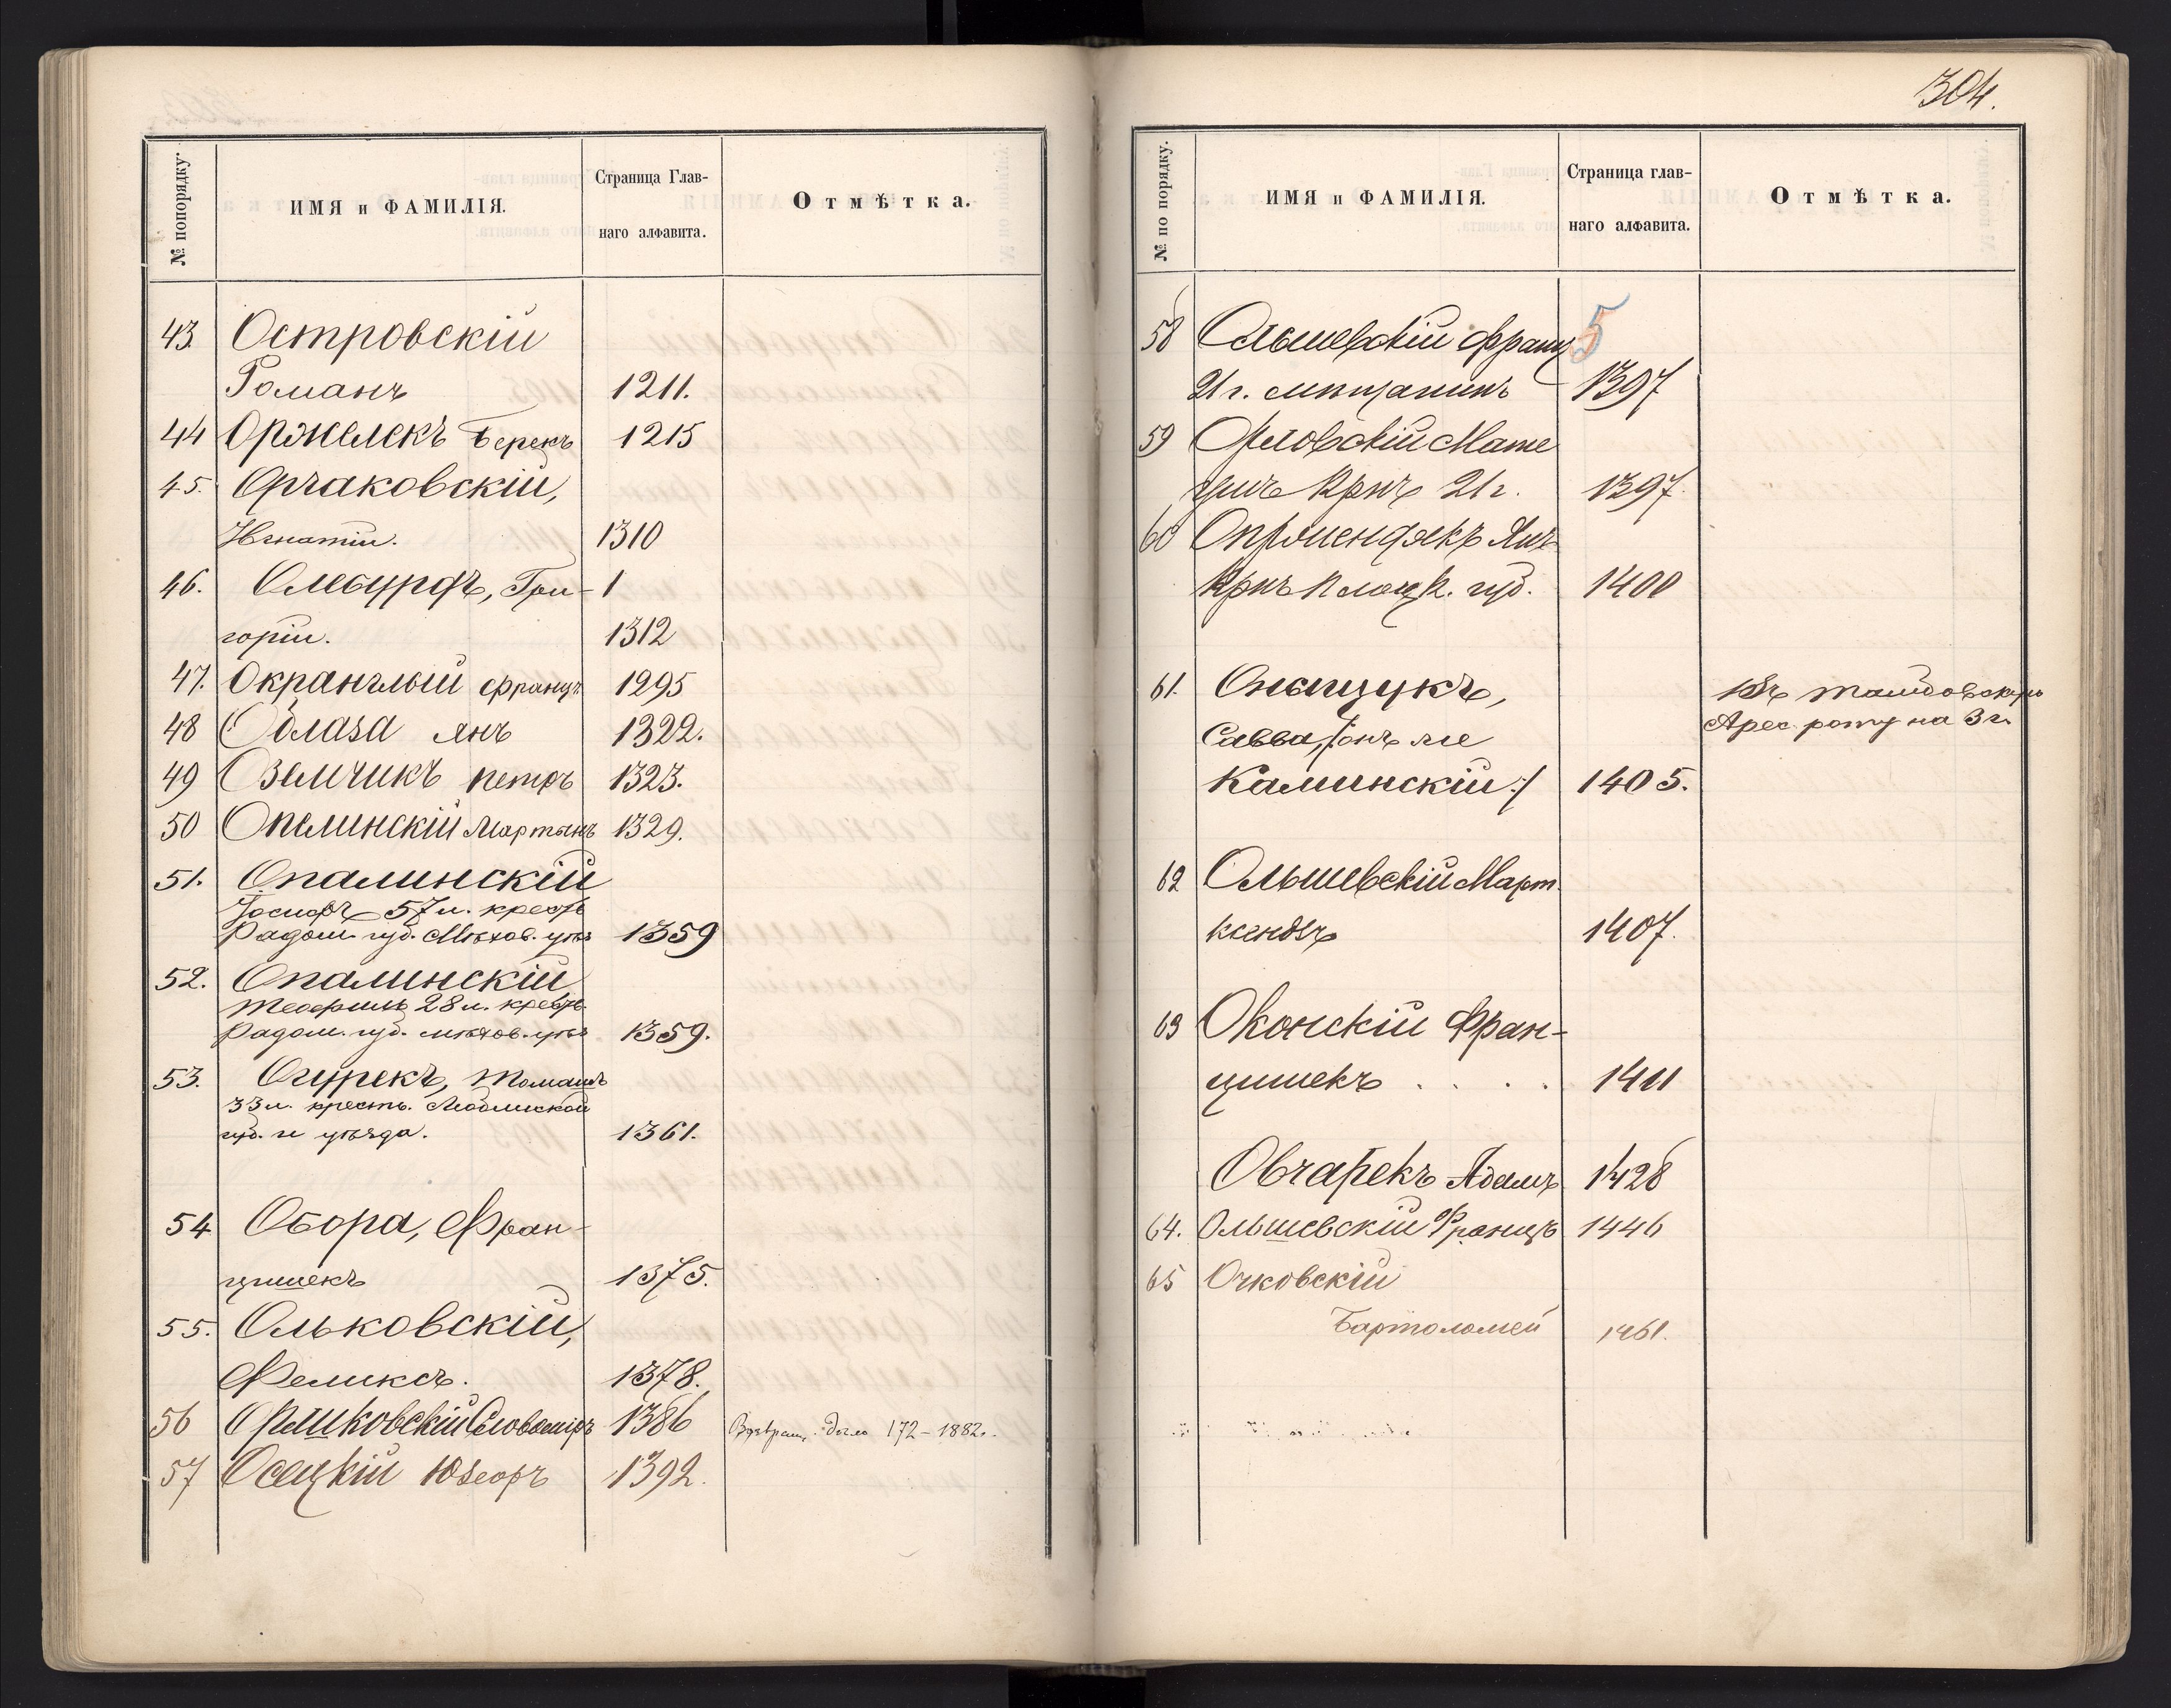 № попорядку.
ИМЯ и ФАМИЛІЯ.
Страница Глав-
наго алфавита.
Отмѣтка.
43. Островскій
Романъ 1211.
44 Оржелекъ Берекъ 1215
45. Орчаковскій,
Игнатій. 1310
46. Олебурфъ, Гри- 1
горій. 1312
47. Окранглый Францъ 1295
48 Облаза Янъ 1322.
49 Озелчикъ Петръ 1323.
50 Опелинскій Мартынъ 1329.
51. Опалинскій
Іосифъ 57 л. крест
Радом. губ. Мѣхов. уѣз 1359
52. Опалинскій
Теофиль 28 л. крест
Радом. губ. Мѣхов. уѣз 1359.
53. Огурекъ, Томашъ
33 л. кресть. Люблинской
губ. и уѣзда. 1361.
54 Обора, Фран-
цишекъ 1375.
55. Ольковскій,
Феликсъ. 1378.
56 Орликовскій 1386 дѣло 172-1882г.
57 Осецкій Юзефъ 1392.
304.
№ по порядку.
ИМЯ и ФАМИЛІЯ.
Страница глав-
наго алфавита.
Отмѣтка.
58 Ольшевскій Францъ 5
21 г. мѣщанинъ 1397
59 Орловскій Мате
ушъ Крнъ 21 г. 1397.
60 Янъ
Крнъ Плоцк. губ. 1400
61. Онищукъ,
Савва, /:онъ же
Калинскій:/ 1405.
Въ
Арес. роту на 3 г.
62 Ольшевскій Март.
ксендзъ 1407.
63 Оконскій Фран-
цишекъ . . . . 1411
Овчарекъ Адамъ 1428
64. Ольшевскій Францъ 1446
65 Очковскій
Бартоломей 1461.